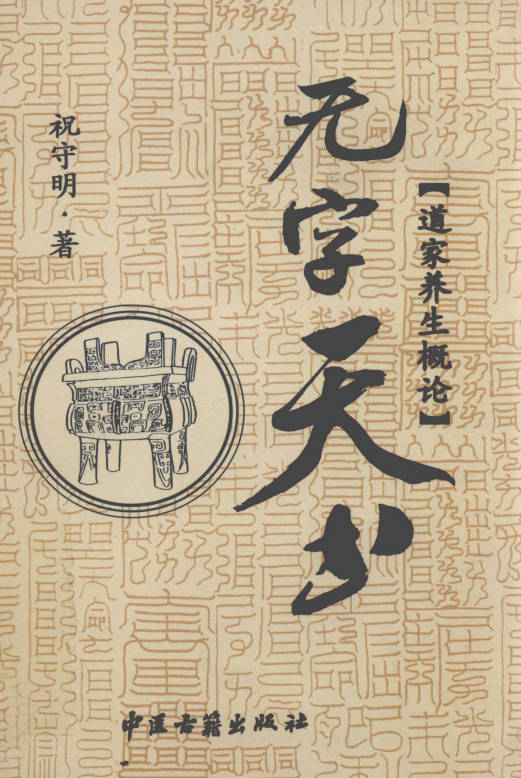 无字天书
【道家养生概论】
祝守明·著
中医古籍出版社